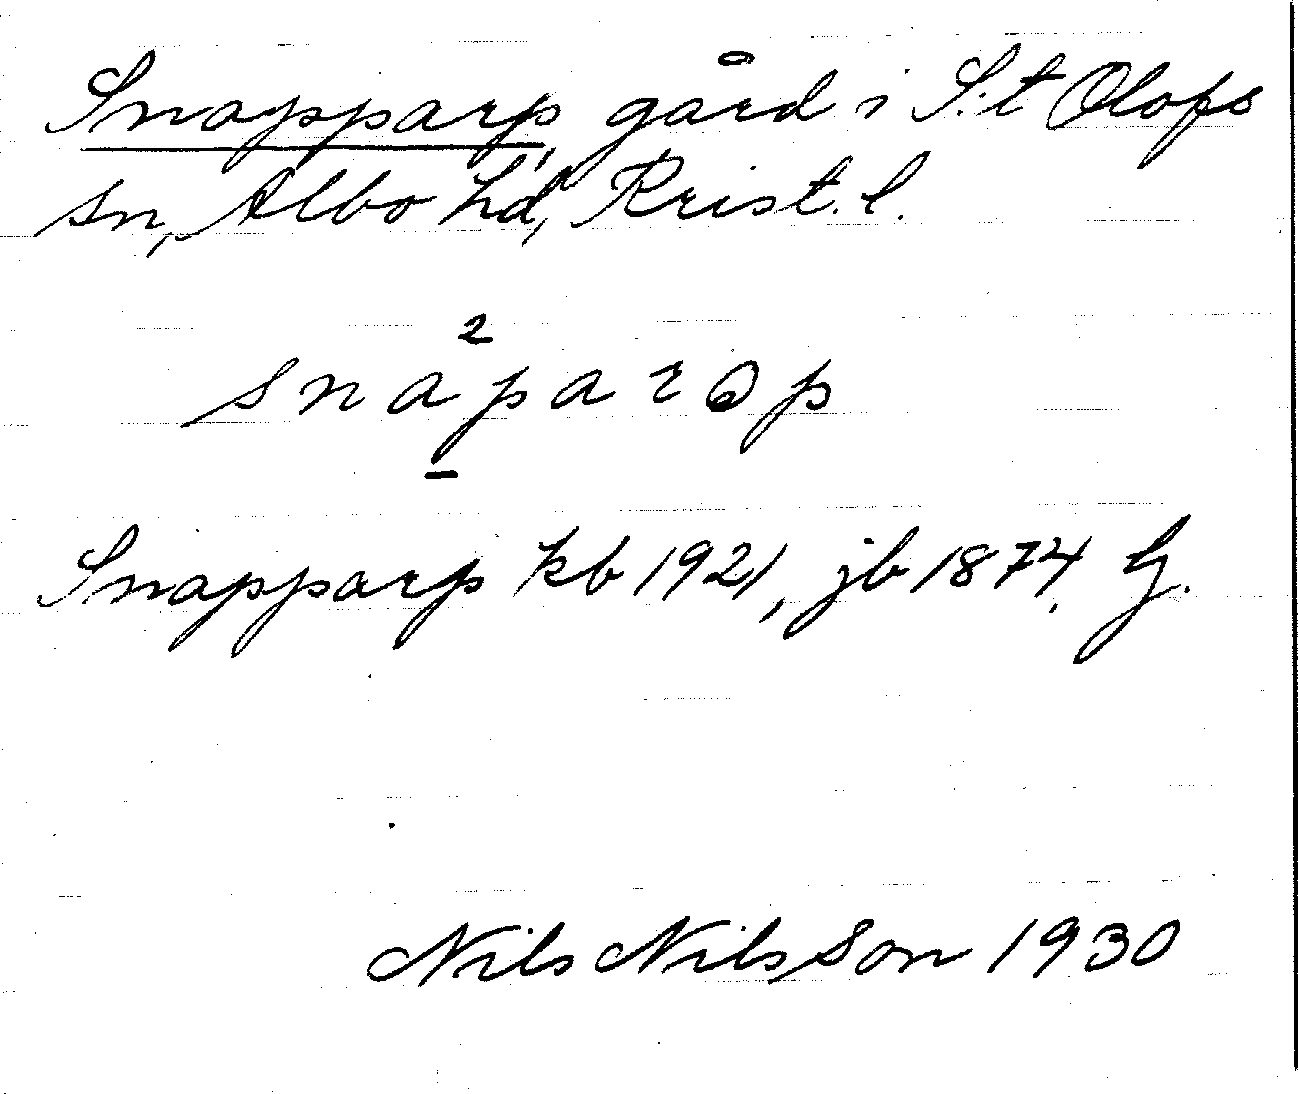 Snapparp, gård i S:t Olofs
sn, Albo hd, Krist. l.
2
snaparəp
Snapparp kb 1921, jb 1874. G.
Nils Nilsson 1930